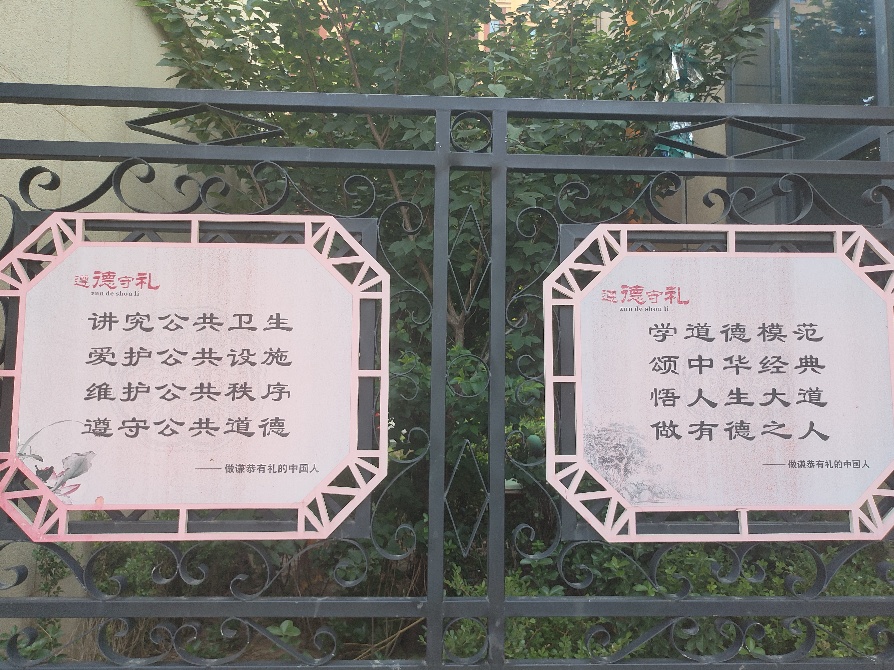 遵德守礼
zun de shou li
讲究公共卫生
爱护公共设施
维护公共秩序
遵守公共道德
——做谦恭有礼的中国人
遵德守礼
zun de shou li
学道德模范
颂中华经典
悟人生大道
做有德之人
——做谦恭有礼的中国人